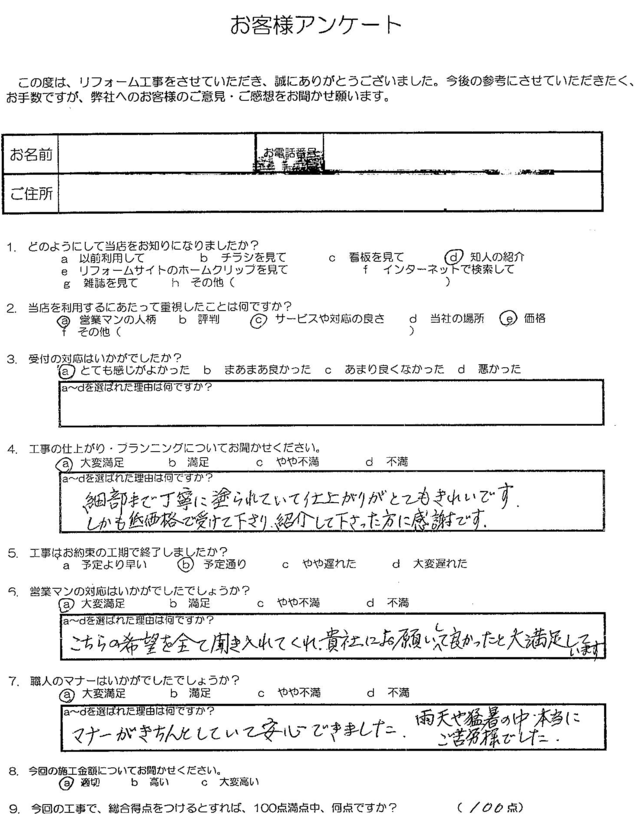 お客様アンケート
この度は、リフォーム工事をさせていただき、誠にありがとうございました。今後の参考にさせていただきたく、
お手数ですが、弊社へのお客様のご意見・ご感想をお聞かせ願います。
お名前 お電話番号
ご住所
1. どのようにして当店をお知りになりましたか？
a 以前利用して b チラシを見て c 看板を見て d 知人の紹介
e リフォームサイトのホームクリップを見て f インターネットで検索して
g 雑誌を見て h その他（ ）
2. 当店を利用するにあたって重視したことは何ですか？
a 営業マンの人柄 b 評判 c サービスや対応の良さ d 当社の場所 e 価格
f その他（ ）
3. 受付の対応はいかがでしたか？
a とても感じがよかった b まあまあ良かった c あまり良くなかった d 悪かった
a～dを選ばれた理由は何ですか？
4. 工事の仕上がり・プランニングについてお聞かせください。
a 大変満足 b 満足 c やや不満 d 不満
a～dを選ばれた理由は何ですか？
細部まで丁寧に塗られていて仕上がりがとてもきれいです.
しかも低価格で受けて下さり、紹介して下さった方に感謝です.
5. 工事はお約束の工期で終了しましたか？
a 予定より早い b 予定通り c やや遅れた d 大変遅れた
6. 営業マンの対応はいかがでしたでしょうか？
a 大変満足 b 満足 c やや不満 d 不満
a～dを選ばれた理由は何ですか？
こちらの希望を全て聞き入れてくれ、貴社にお願いして良かったと大満足して
います
7. 職人のマナーはいかがでしたでしょうか？
a 大変満足 b 満足 c やや不満 d 不満
a～dを選ばれた理由は何ですか？
マナーがきちんとしていて安心できました. 雨天や猛暑の中、本当に
ご苦労様でした.
8. 今回の施工金額についてお聞かせください。
a 適切 b 高い c 大変高い
9. 今回の工事で、総合得点をつけるとすれば、100点満点中、何点ですか？ （ 100 点）